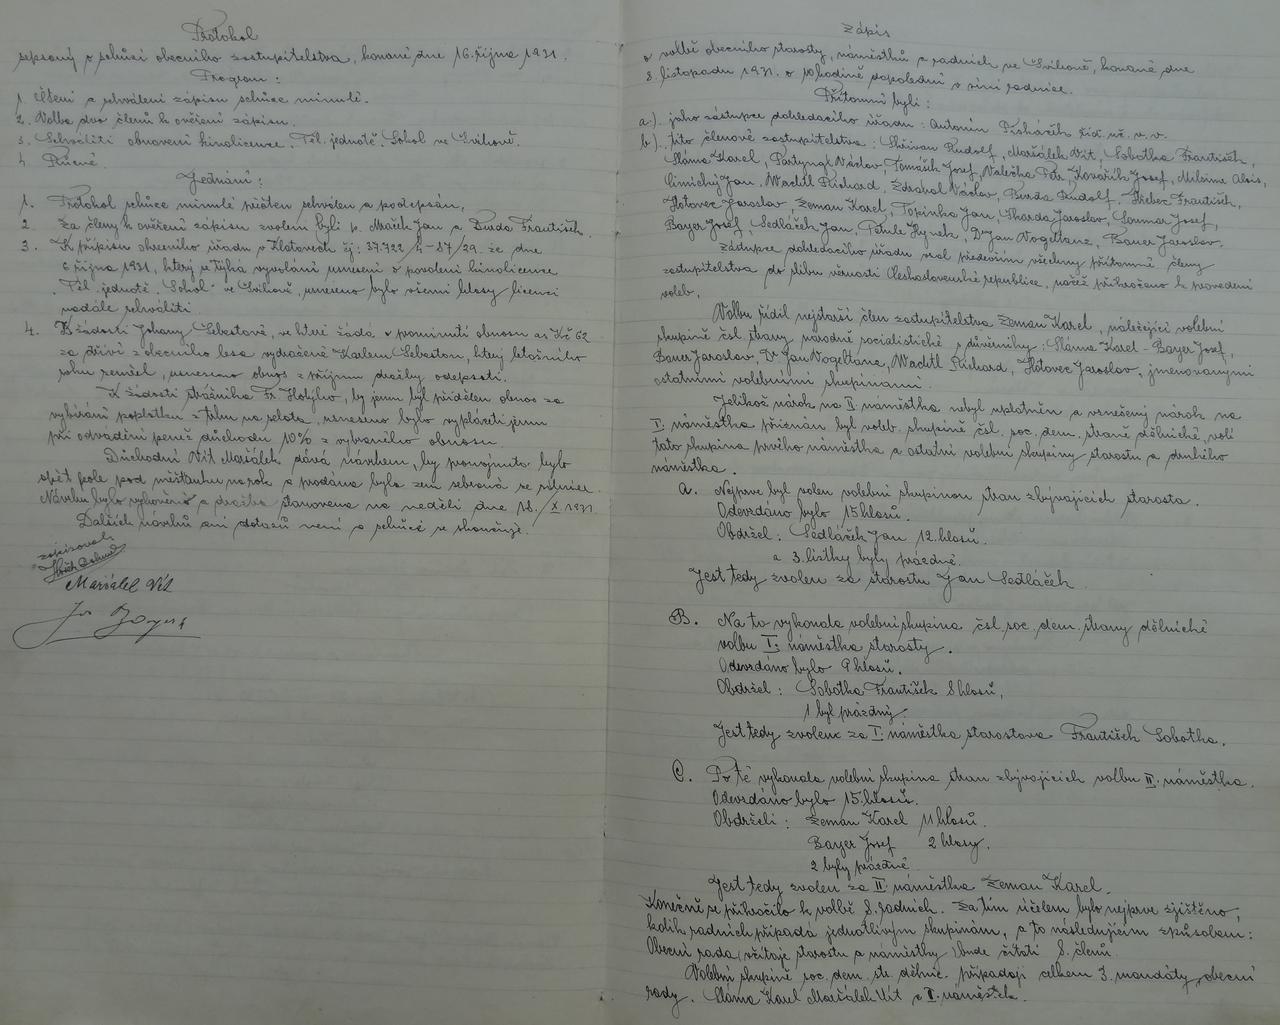 Protokol
sepsaný o schůzi obecního zastupitelstva, konané dne 16. října 1931.
Program:
1. Čtení a schválení zápisu schůze minulé.
2. Volba dvou členů k ověření zápisu.
3. Schváliti obnovení kinolicence. Těl. jednotě Sokol ve Švihově.
4. Různé.
Jednání:
1. Protokol schůze minulé přečten schválen a podepsán.
2. Za členy k ověření zápisu zvoleni byli p. Mašek Jan a Burda František.
3. K přípisu okresního úřadu v Klatovech čj: 37.722/4-87/29. ze dne
6 října 1931, který se týká vyvolání usnesení o povolení kinolicence
Těl. jednotě Sokol ve Švihově, usneseno bylo všemi hlasy licenci
nadále schváliti.
4. K žádosti Johany Šebestové, ve které žádá o prominutí obnosu as Kč 62
za dříví z obecního lesa vydražené Karlem Šebestou, který letošního
roku zemřel, usneseno obnos z příjmu dražby odepsati.
K žádosti strážníka Fr. , by jemu byl přidělen obnos za
vybírání poplatku z trhu na selata, usneseno bylo vypláceti jemu
při odvádění peněz důchodu 10% z vybraného obnosu.
Důchodní Vít Maršálek dává návrhem, by pronajmuto bylo
opět pole pod na rok a prodána byla zem sebraná se silnice.
Návrhu bylo vyhověno a dražba stanovena na neděli dne 18./X 1931.
Dalších návrhů ani dotazů není a schůze se skončuje.
zapisoval:
Maršálek Vít
Zápis
o volbě obecního starosty, náměstků a radních ve Švihově, konané dne
8. listopadu 1931. o hodině dopolední v síni radnice.
Přítomni byli:
a.) jako zástupce dohledacího úřadu: Antonín říd. uč. v. v.
b.) tito členové zastupitelstva: Rudolf, Maršálek Vít, Sobotka František,
Sláma Karel, Václav, Tomášek Josef, Valečka Petr, Kovářík Josef, Alois,
Jan, Wachtl Richard, Zdrahal Václav, Burda Rudolf, František,
Hotovec Jaroslav, Zeman Karel, Topinka Jan, Škarda Jaroslav, Josef,
Bayer Josef, Sedláček Jan, Hynek, Dr Jan Vogeltanz, Bauer Jaroslav.
Zástupce dohledacího úřadu vzal především všechny přítomné členy
zastupitelstva do slibu věrnosti Československé republice, načež přikročeno k provedení
voleb.
Volbu řídil nejstarší člen zastupitelstva Zeman Karel, náležející volební
skupině čsl. strany národně socialistické s důvěrníky: Sláma Karel - Bayer Josef,
Bauer Jaroslav, Dr Jan Vogeltanz, Wachtl Richard, Hotovec Jaroslav, jmenovanými
ostatními volebními skupinami.
Jelikož nárok na II náměstka nebyl uplatněn a vznešený nárok na
I. náměstka přiznán byl voleb. skupině čsl. soc. dem. straně dělnické, volí
tato skupina prvého náměstka a ostatní volební skupiny starostu a druhého
náměstka.
a. Nejprve byl volen volební skupinou stran zbývajících starosta.
Odevzdáno bylo 15 hlasů.
Obdržel: Sedláček Jan 12 hlasů.
a 3. lístky byly prázdné.
Jest tedy zvolen za starostu Jan Sedláček.
B. Na to vykonala volební skupina čsl. soc. dem. strany dělnické
volbu I. náměstka starosty.
Odevzdáno bylo 9 hlasů.
Obdržel: Sobotka František 8 hlasů,
1 byl prázdný.
Jest tedy zvolen za I. náměstka starostova František Sobotka.
C. Po té vykonala volební skupina stran zbývajících volbu II. náměstka.
Odevzdáno bylo 15. hlasů.
Obdrželi: Zeman Karel 11 hlasů.
Bayer Josef 2 hlasy.
2 byly prázdné.
Jest tedy zvolen za II náměstka Zeman Karel.
Konečně se přikročilo k volbě 8. radních. Za tím účelem bylo nejprve zjištěno,
kolik radních připadá jednotlivým skupinám, a to následujícím způsobem:
Obecní rada (včítaje starostu a náměstky) bude čítati 8. členů.
Volební skupině soc. dem. str. dělnic. připadají celkem 3. mandáty obecní
rady. Sláma Karel Maršálek Vít a I. náměstek.